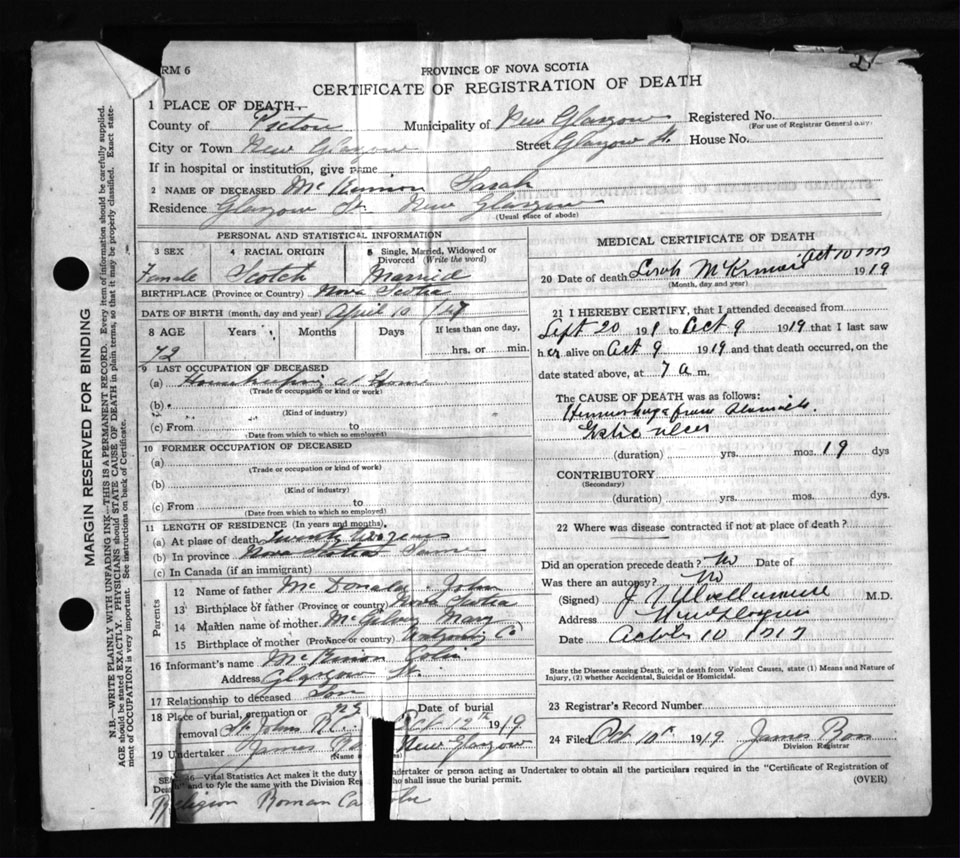 RM 6
PROVINCE OF NOVA SCOTIA
CERTIFICATE OF REGISTRATION OF DEATH
1 PLACE OF DEATH.
County of Pictou Municipality of New Glasgow Registered No.
(For use of Registrar General only)
City or Town New Glasgow Street Glasgow St. House No.
If in hospital or institution, give name
2 NAME OF DECEASED McKinnon Sarah
Residence Glasgow St. New Glasgow
(Usual place of abode)
PERSONAL AND STATISTICAL INFORMATION
3 SEX 4 RACIAL ORIGIN 5 Single, Married, Widowed or Divorced (Write the word)
Female Scotch Married
BIRTHPLACE (Province or Country) Nova Scotia
DATE OF BIRTH (month, day and year) April 10
8 AGE Years Months Days If less than one day,
72 hrs. or min.
9 LAST OCCUPATION OF DECEASED
(a) Housekeeping at Home
(Trade or occupation or kind or work)
(b)
(Kind of industry)
(c) From to
(Date from which to which so employed)
10 FORMER OCCUPATION OF DECEASED
(a)
(Trade or occupation or kind of work)
(b)
(Kind of industry)
(c) From to
(Date from which to which so employed)
11 LENGTH OF RESIDENCE (In years and months).
(a) At place of death Twenty two years
(b) In province Nova Scotia Same
(c) In Canada (if an immigrant)
Parents
12 Name of father McDonald John
13 Birthplace of father (Province or country) Nova Scotia
14 Maiden name of mother. Mary
15 Birthplace of mother (Province or country) Antigonish Co
16 Informant's name McKinnon Colin
Address Glasgow St.
17 Relationship to deceased Son
18 Place of burial, cremation or removal St Johns Date of burial Oct 12th 1919
19 Undertaker James New Glasgow
MEDICAL CERTIFICATE OF DEATH
20 Date of death Sarah McKinnon Oct 10 1919 1919
(Month, day and year)
21 I HEREBY CERTIFY, that I attended deceased from
Sept 20 191 to Oct 9 1919 that I last saw
her alive on Oct 9 1919 and that death occurred, on
date stated above, at 7 a m.
The CAUSE OF DEATH was as follows:
Hemorrhage from stomach.
Gastric ulcer
(duration) yrs. mos. 19 dys
CONTRIBUTORY
(Secondary)
(duration) yrs. mos. dys.
22 Where was disease contracted if not at place of death?
Did an operation precede death? No Date of
Was there an autopsy? No
(Signed) M.D.
Address New Glasgow
Date October 10 1919
State the Disease causing Death, or in death from Violent Causes, state (1) Means and Nature of
Injury, (2) whether Accidental, Suicidal or Homicidal.
23 Registrar's Record Number
24 Filed Oct 10th 1919 James
Division Registrar
46—Vital Statistics Act makes it the duty
ndertaker or person acting as Undertaker to obtain all the particulars required in the "Certificate of Registration of
and to fyle the same with the Division
ho shall issue the burial permit.
(OVER)
Religion Roman Ca
MARGIN RESERVED FOR BINDING
N.B.—WRITE PLAINLY WITH UNFADING INK—THIS IS A PERMANENT RECORD. Every item of information should be carefully supplied.
AGE should be stated EXACTLY. PHYSICIANS should STATE CAUSE OF DEATH in plain terms, so that it may be properly classified. Exact state-
ment of OCCUPATION is very important. See instructions on back of Certificate.